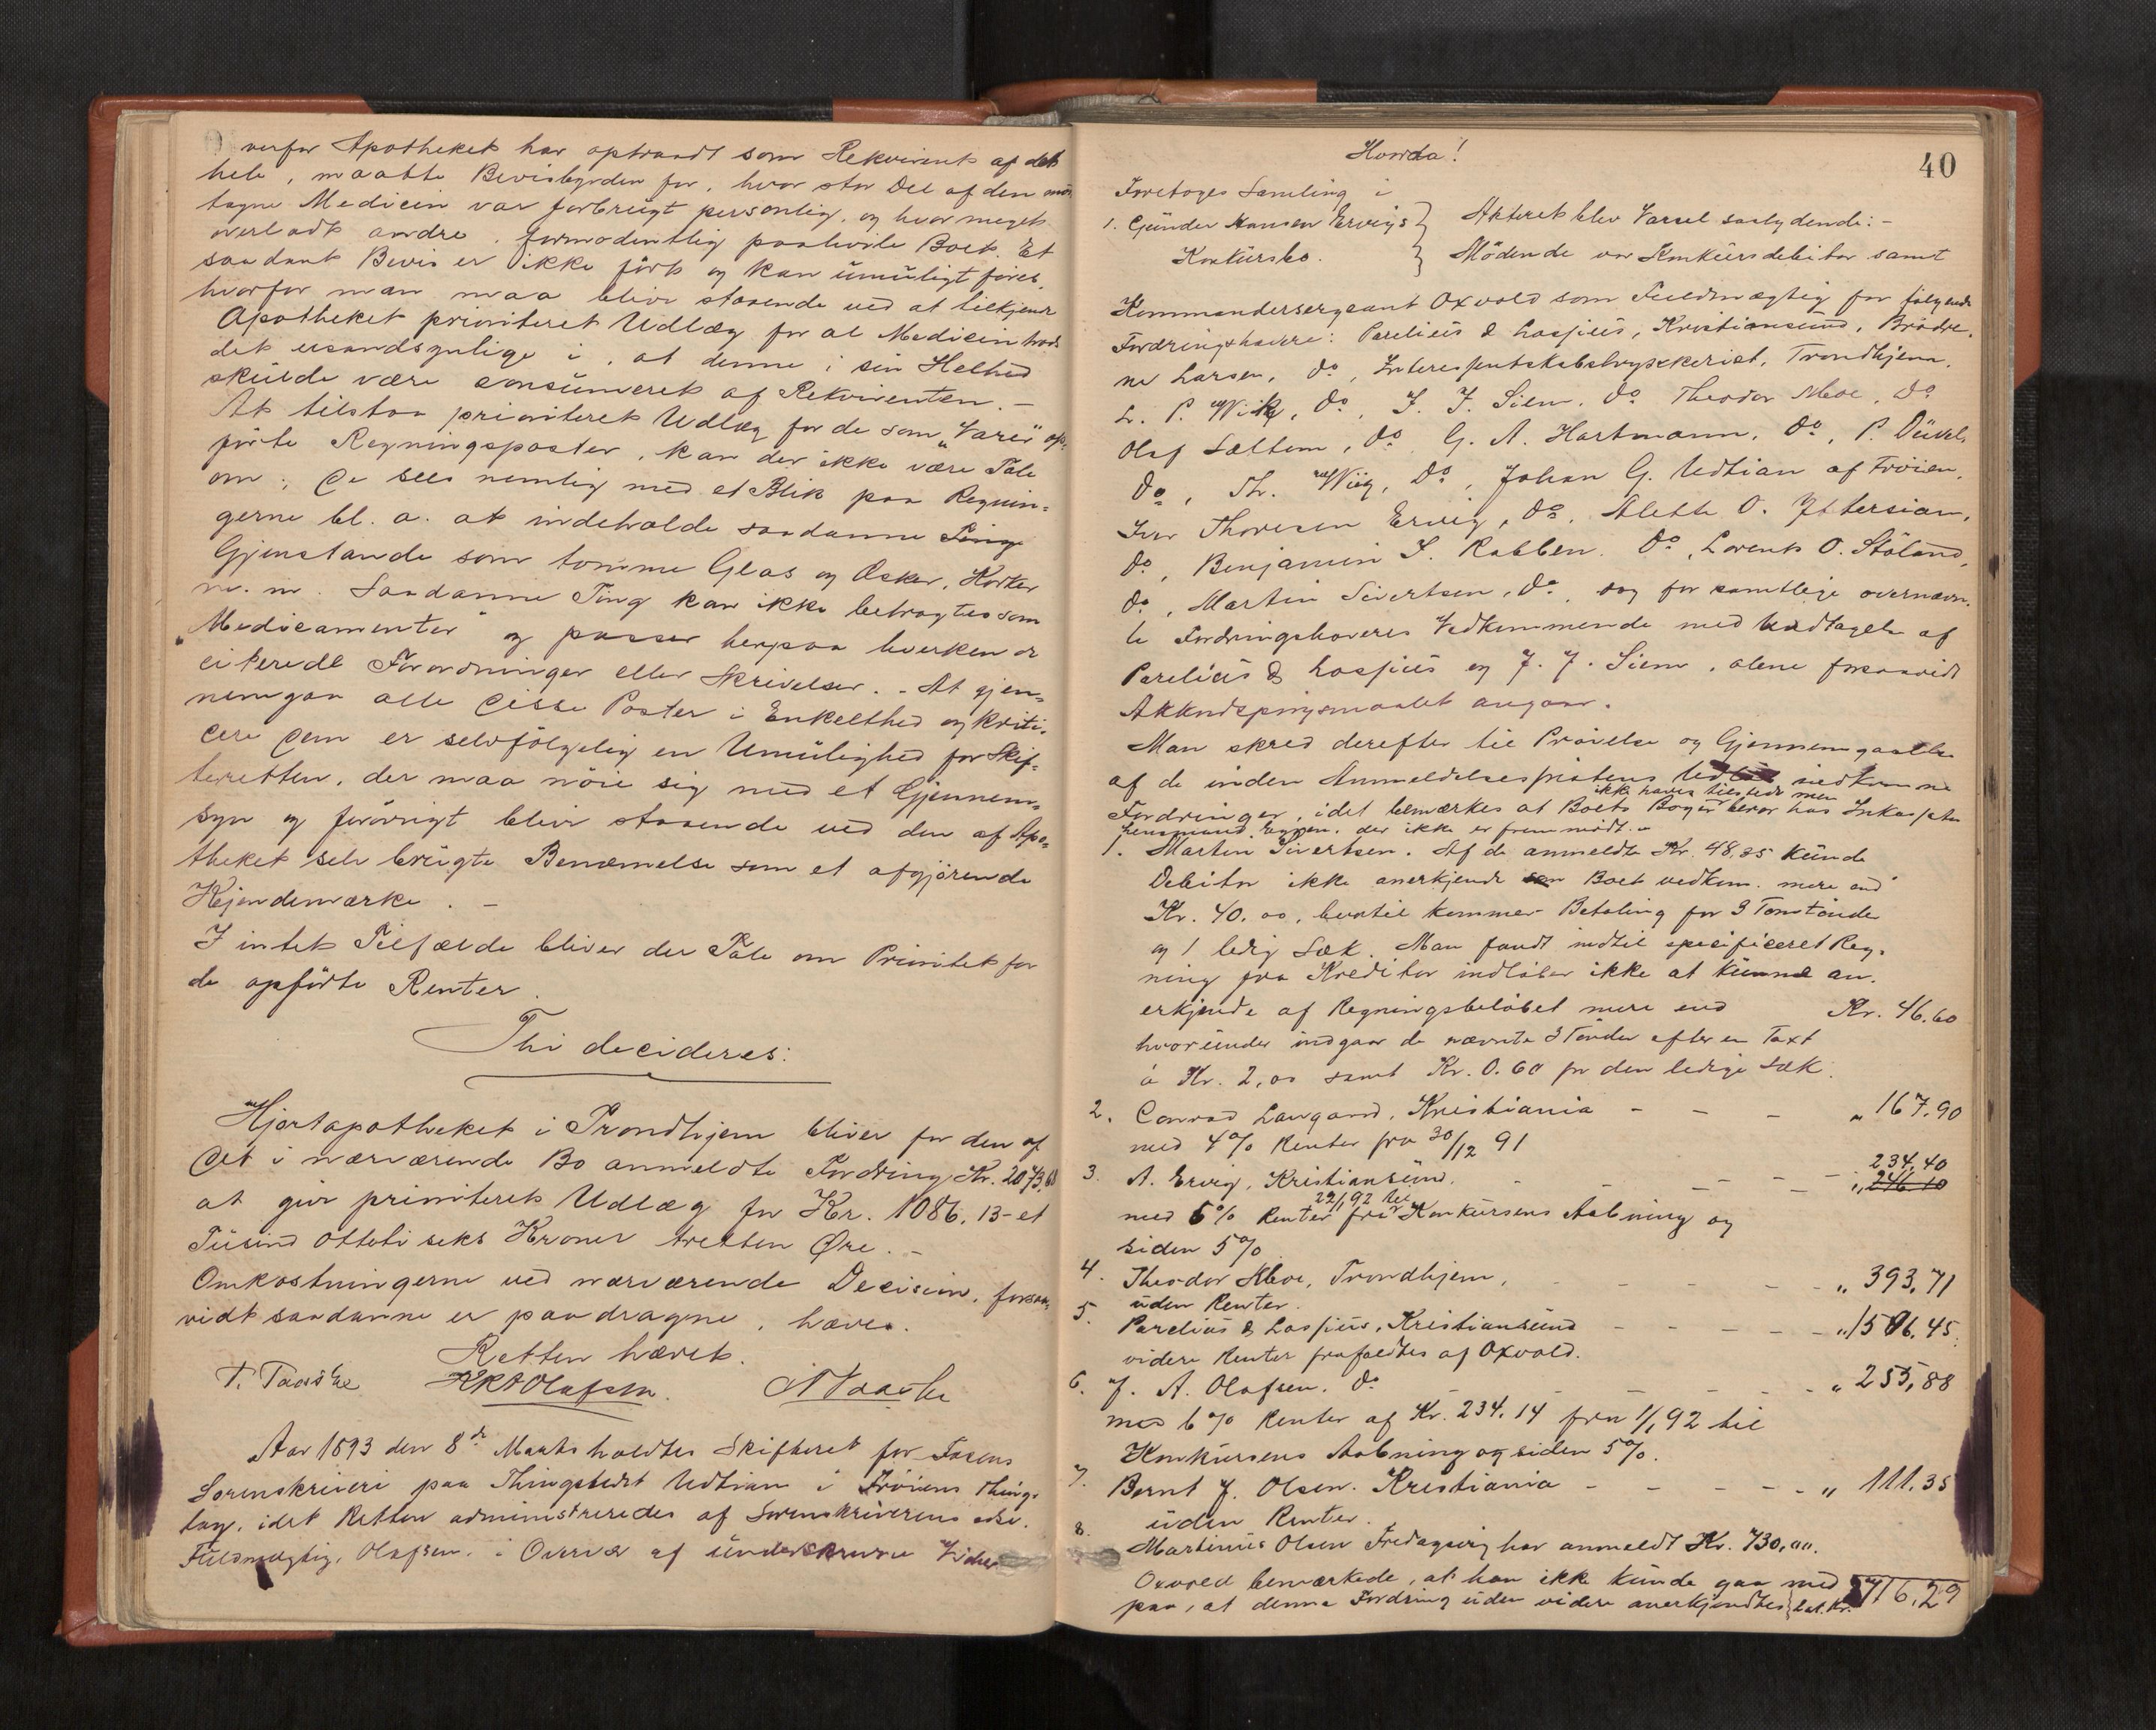 verfor Apotheket har optraadt som Rekvirent af det
hele, maatte Bevisbyrden for, hvor stor Del af den mod
tagne Medicin var forbrugt personlig, og hvor meget
overladt andre, formodentlig paahvile Boet. Et
saadant Bevis er ikke ført og kan umuligt føres,
hvorfor man maa blive staaende ved at tilkjende
Apotheket prioriteret Udlæg for al Medicin trods
det usandsynlige i, at denne i sin Helhed
skulde være consumeret af Rekvirenten. –
At tilstaa prioriteret Udlæg for de som "Varer" op-
førte Regningsposter, kan der ikke være Tale
om; De sees nemlig med et Blik paa Regnin-
gerne bl. a. at indeholde saadanne Ting
Gjenstande som tomme Glas og Æsker, Korker
m. m. Saadanne Ting kan ikke betragtes som
"Medicamenter" og passer herpaa hverken de
citerede Forordninger eller Skrivelser. - At gjen-
nemgaa alle disse Poster i Enkelthed og kriti-
cere dem er selvfølgelig en Umulighed for Skif-
teretten, der maa nøie sig med et Gjennem-
syn og forøvrigt blive staaende ved den af Apo-
theket selv brugte Benævnelse som et afgjørende
Kjendemærke. –
I intet Tilfælde bliver der Tale om Prioritet for
de opførte Renter.
Thi decideres:
Hjortapotheket i Trondhjem bliver for den af
det i nærværende Bo anmeldte Fordring, Kr. 2073,68
at give prioriteret Udlæg for Kr. 1086,13 - et
Tusind ottetiseks Kroner tretten Øre. –
Omkostningerne ved nærværende Decision, forsaa-
vidt saadanne er paadragne, hæves.
Retten hævet.
T. Taaske KRAOlafsen. A Taaske
Aar 1893 den 8de Marts holdtes Skifteret for Fosens
Sorenskriveri paa Thingstedet Udtian i Frøiens Thing-
lag, idet Retten administreredes af Sorenskriverens eds.
Fuldmægtig, Olafsen, i Overvær af underskrevne Vidner
40
Hvorda!
Foretoges Samling i
1. Gunder Hansen Ervigs } Akteret blev Varsel saalydende: -
Konkursbo. } Mødende var Konkursdebitor samt
Kommandersergeant Oxvold som Fuldmægtig for følgende
Fordringshavere: Parelius & Lossius, Kristiansund, Brødre-
ne Larsen, do, Interessentskabstrykkeriet, Trondhjem,
L. P. Wik, do, J. J. Siem, do Theodor Moe, do
Olaf Sæltem, do G. A. Hartmann, do, P. Düvel,
do, Th. Wiig, do, Johan G. Udtian af Frøien,
Iver Thoresen Ervig, do, Alette O. Yttersian,
do, Benjamin J. Rabben. do, Lorents O. Støland,
do, Martin Sivertsen, do, dog for samtlige overnævn-
te Fordringshaveres Vedkommende med Undtagelse af
Parelius & Lossius og J. J. Siem, alene forsaavidt
Akkordspørgsmaalet angaar.
Man skred derefter til Prøvelse og Gjennemgaaelse
af de inden Anmeldelsesfristens Udløb indkomne
ikke haves tilstede men
Fordringer, idet bemærkes at Boets Bøger beror hos Inkassator
Lensmand Eggen, der ikke er fremmødt. –
1. Martin Sivertsen. Af de anmeldte Kr. 48,25 kunde
Debitor ikke anerkjende Boet vedkom. mere end
Kr. 40.00, hvortil kommer Betaling for 3 Tomtønder
og 1 ledig Sæk. Man fandt indtil specificeret Reg-
ning fra Kreditor indløber ikke at kunne an-
erkjende af Regningsbeløbet mere end Kr. 46.60
hvorunder indgaar de nævnte 3 Tønder efter en Taxt
à Kr. 2,00 samt Kr. 0.60 for den ledige Sæk.
2. Conrad Langaard, Kristiania - - - " 167.90
med 4% Renter fra 30/12 91
234.40
3. A. Ervig, Kristiansund. - - - " 246.10
22/1 92 til
med 6% Renter fra Konkursens Aabning og
siden 5%
4. Theodor Moe, Trondhjem, - - - " 393,71
uden Renter.
5. Parelius & Lossius, Kristiansund - - - " 1506.45.
videre Renter frafaldtes af Oxvold.
6. J. A. Olafsen. do - - - " 255,88
med 6% Renter af Kr. 234.14 fra 1/1 92 til
Konkursens Aabning og siden 5%.
7. Bernt J. Olsen. Kristiania - - - " 111.35
uden Renter.
8. Martinus Olsen Fredagsvig har anmeldt Kr. 730,00.
Oxvold bemærkede, at han ikke kunde gaa med
paa, at denne Fordring uden videre anerkjendtes} Lat. Kr. 2716,29